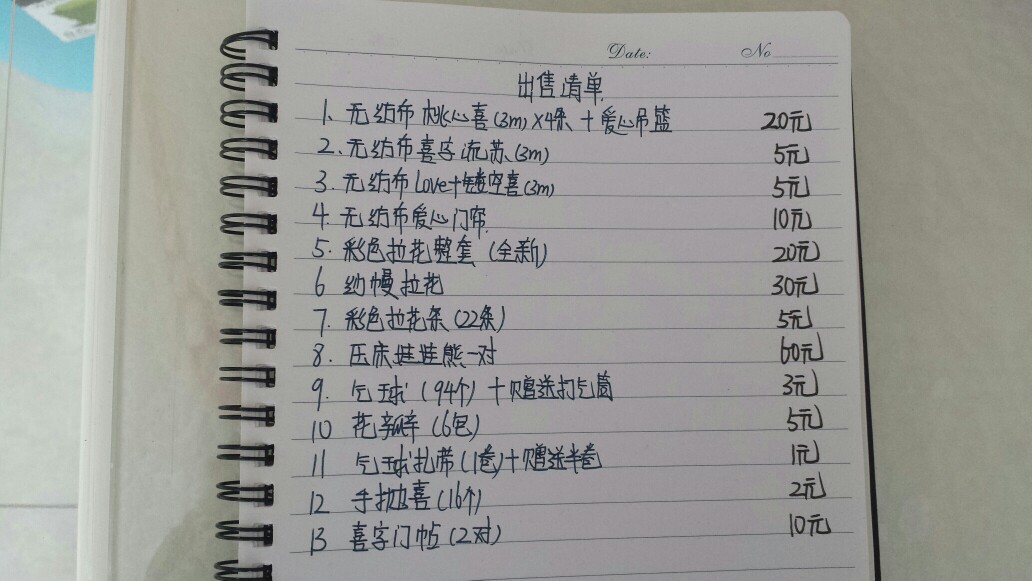 Date: No
出售清单
1、无纺布桃心喜(3m)×4条+爱心吊篮 20元
2、无纺布喜字流苏(3m) 5元
3、无纺布Love+镂空喜(3m) 5元
4、无纺布爱心门帘 10元
5、彩色拉花整套(全新) 20元
6 纱幔拉花 30元
7、彩色拉花条(22条) 5元
8、压床娃娃熊一对 60元
9、气球(94个)+赠送打气筒 3元
10 花瓣(6包) 5元
11 气球扎带(1卷)+赠送半卷 1元
12 手抛喜(16个) 2元
13 喜字门帖(2对) 10元